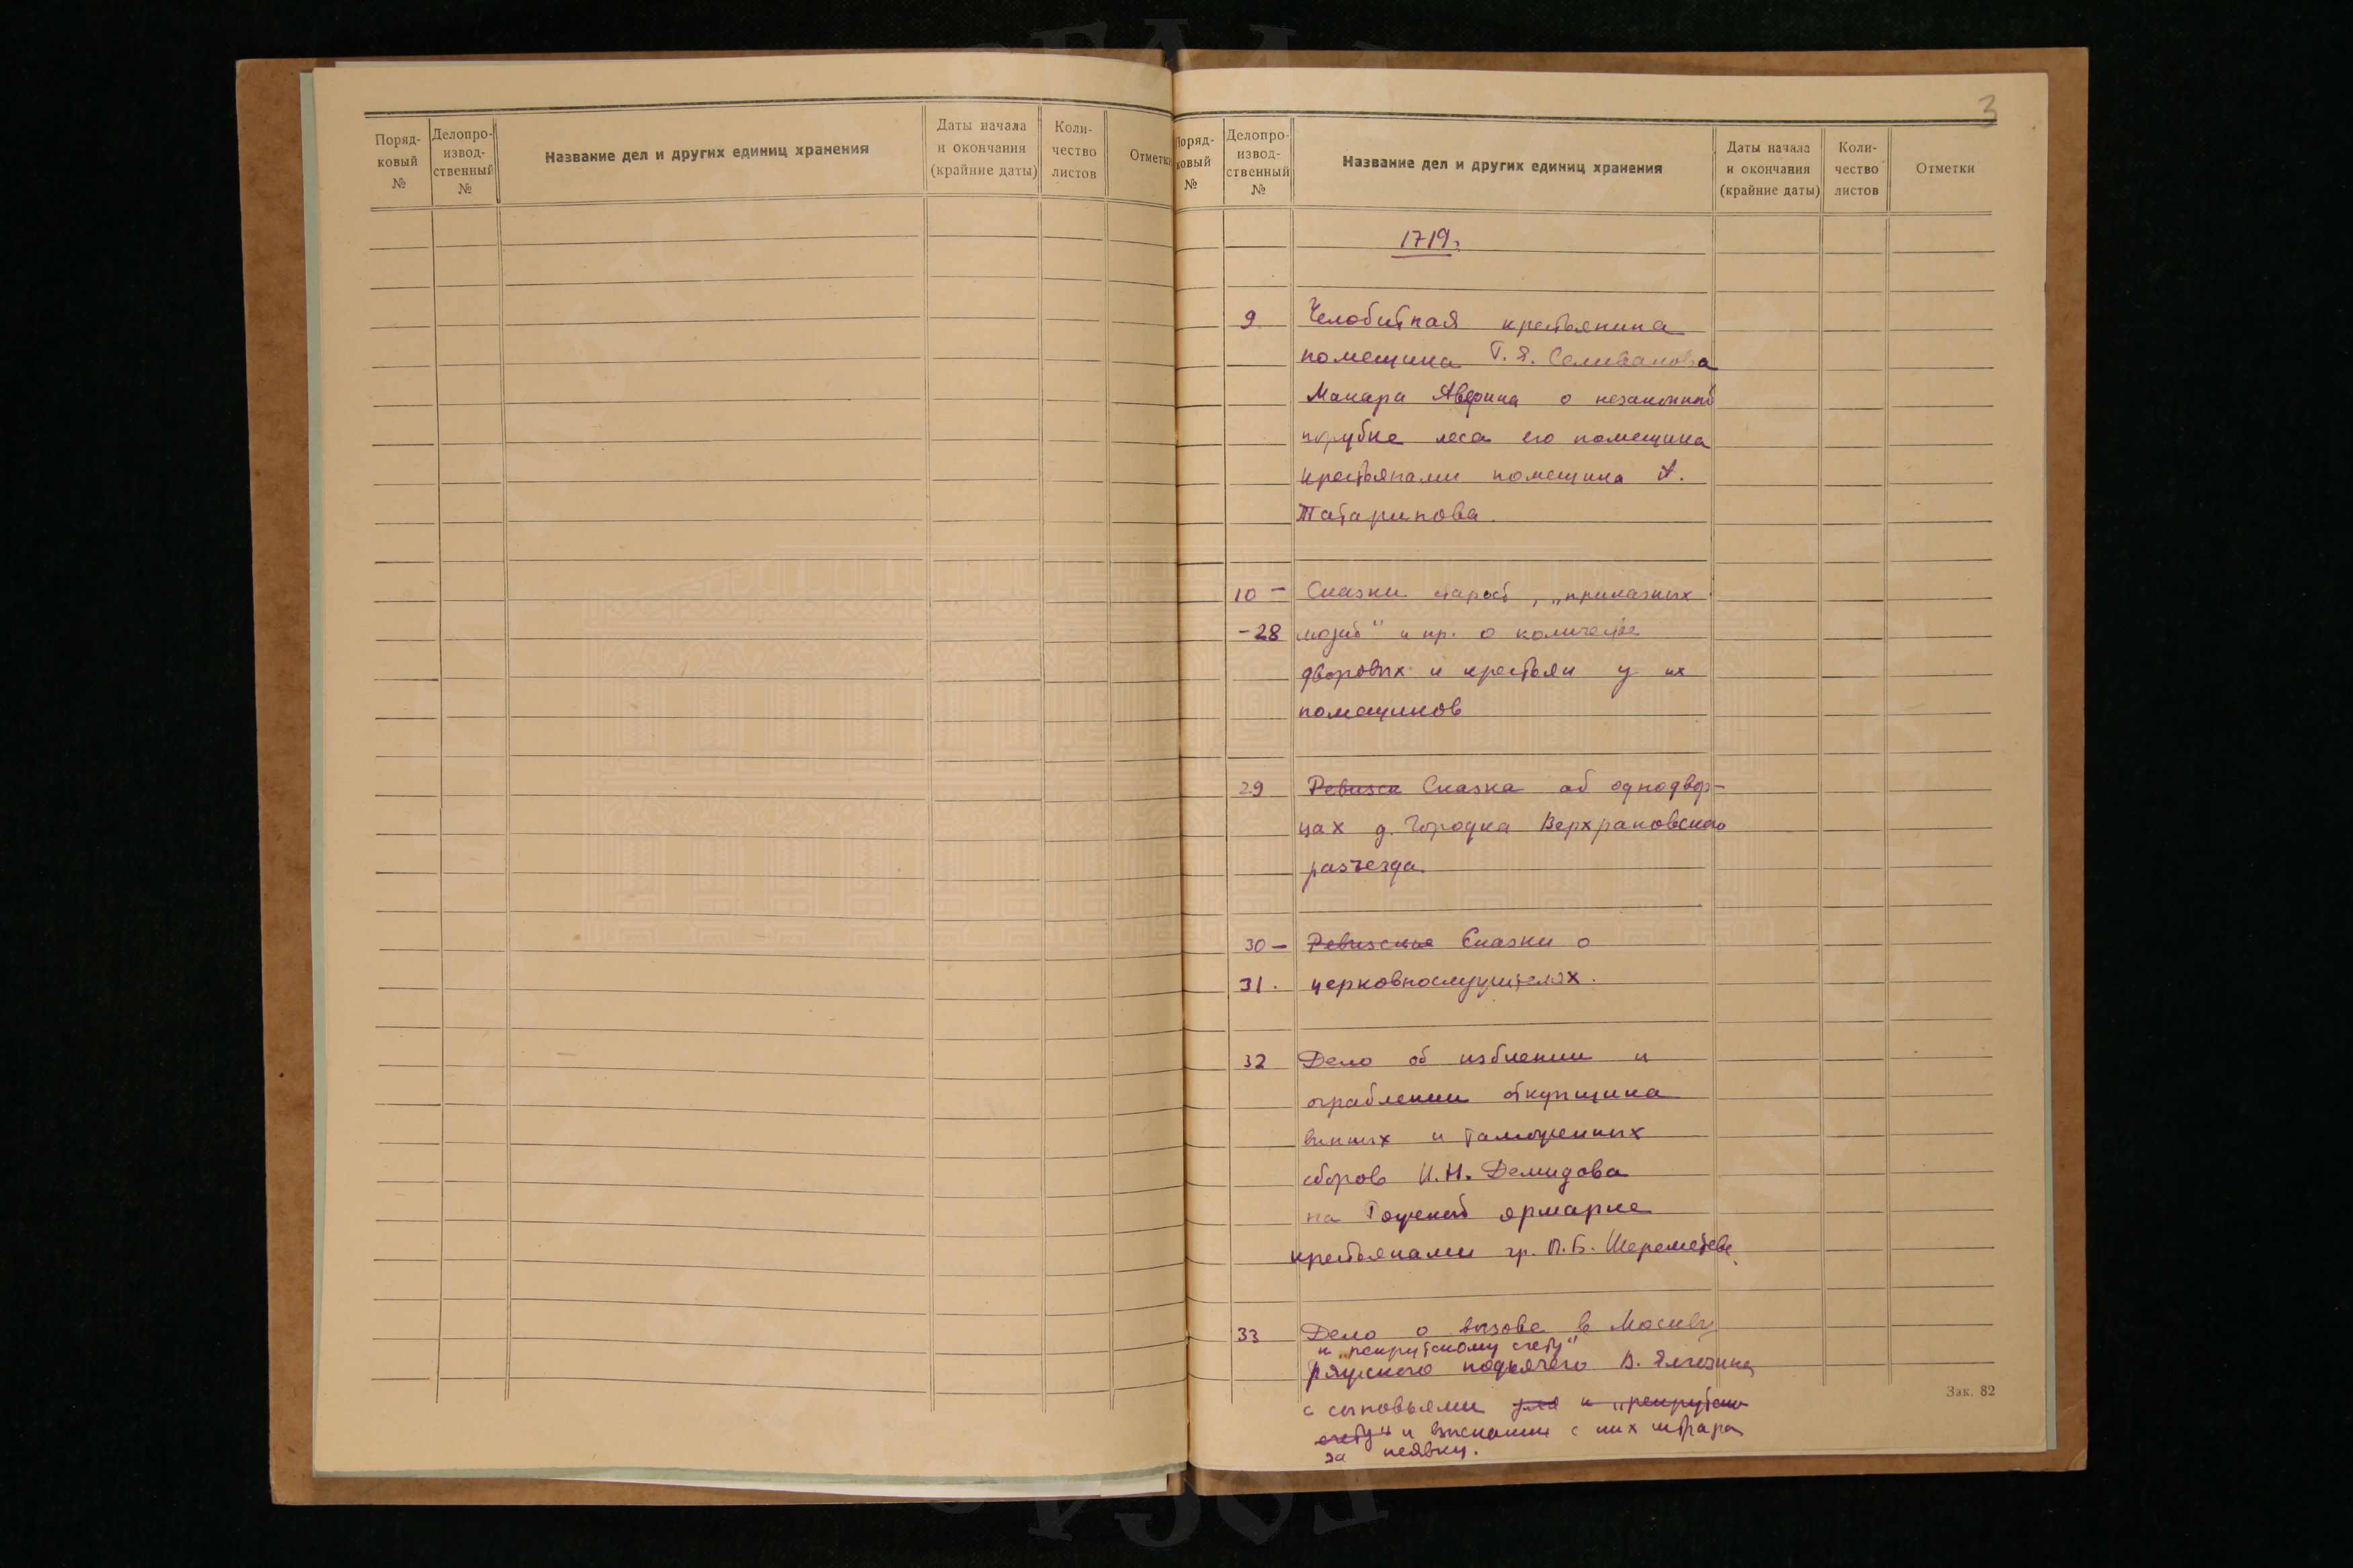 Поряд-
ковый
№
Делопро-
извод-
ственный
№
Название дел и других единиц хранения
Даты начала
и окончания
(крайние даты)
Коли-
чество
листов
Отметки
3
Поряд-
ковый
№
Делопро-
извод-
ственный
№
Название дел и других единиц хранения
Даты начала
и окончания
(крайние даты)
Коли-
чество
листов
Отметки
1719.
9 Челобитная крестьянина
помещика Г. Я. Селиванова
Макара Аверина о незаконной
порубке леса его помещика
крестьянами помещика А.
Татаринова.
10 – Сказки старост, „приказных
– 28 людей" и пр. о количестве
дворовых и крестьян у их
помещиков
29 Ревизск Сказка об однодвор-
цах д. Городка Верхрановского
разъезда.
30 – Ревизские Сказки о
31. церковнослужителях.
32 Дело об избиении и
ограблении откупщика
винных и таможенных
сборов И. Н. Демидова
на ярмарке
крестьянами гр. П. Б. Шереметева.
33 Дело о вызове в Москву
к „рекрутскому счету"
ряжского подьячего В.
с сыновьями для к „рекрутско
счету" и взыскании с них штрафа
за неявку.
Зак. 82